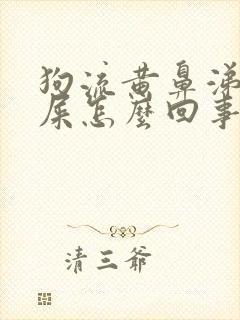 狗流黄鼻涕
屎怎麽回事
清三爷